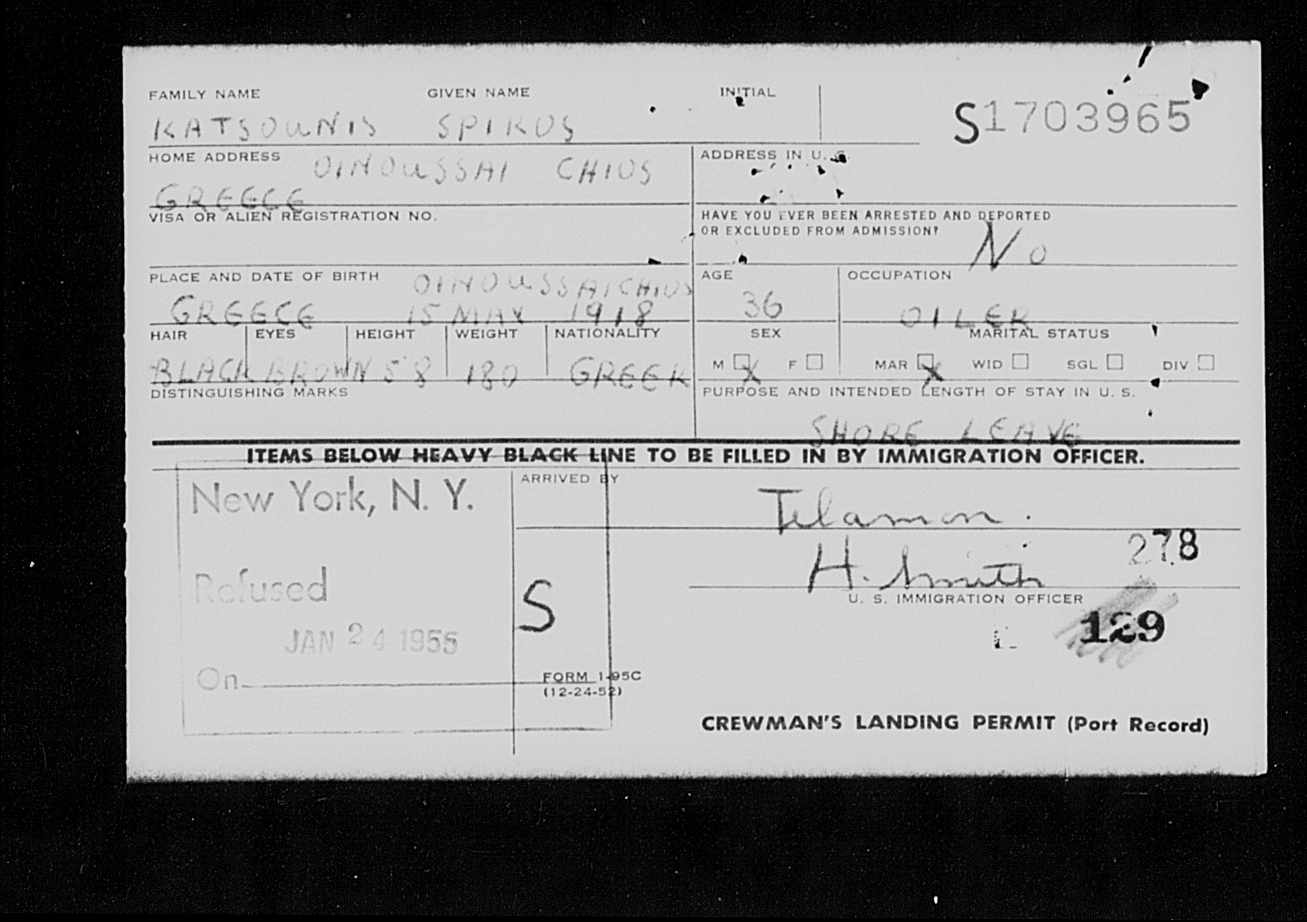 FAMILY NAME GIVEN NAME INITIAL
KATSOUNIS SPIROS S1703965
HOME ADDRESS OINOUSSAI CHIOS ADDRESS IN U. S.
GREECE
VISA OR ALIEN REGISTRATION NO. HAVE YOU EVER BEEN ARRESTED AND DEPORTED
OR EXCLUDED FROM ADMISSION? No
PLACE AND DATE OF BIRTH OINOUSSAI CHIOS AGE OCCUPATION
GREECE 15 MAY 1918 36 OILER
HAIR EYES HEIGHT WEIGHT NATIONALITY SEX MARITAL STATUS
BLACK BROWN 5'8 180 GREEK M X F MAR X WID SGL DIV
DISTINGUISHING MARKS PURPOSE AND INTENDED LENGTH OF STAY IN U. S.
SHORE LEAVE
ITEMS BELOW HEAVY BLACK LINE TO BE FILLED IN BY IMMIGRATION OFFICER.
New York, N. Y. ARRIVED BY Telamon.
278
H. Smith
Refused S U. S. IMMIGRATION OFFICER
129
JAN 24 1955
On FORM I-95C
(12-24-52)
CREWMAN'S LANDING PERMIT (Port Record)